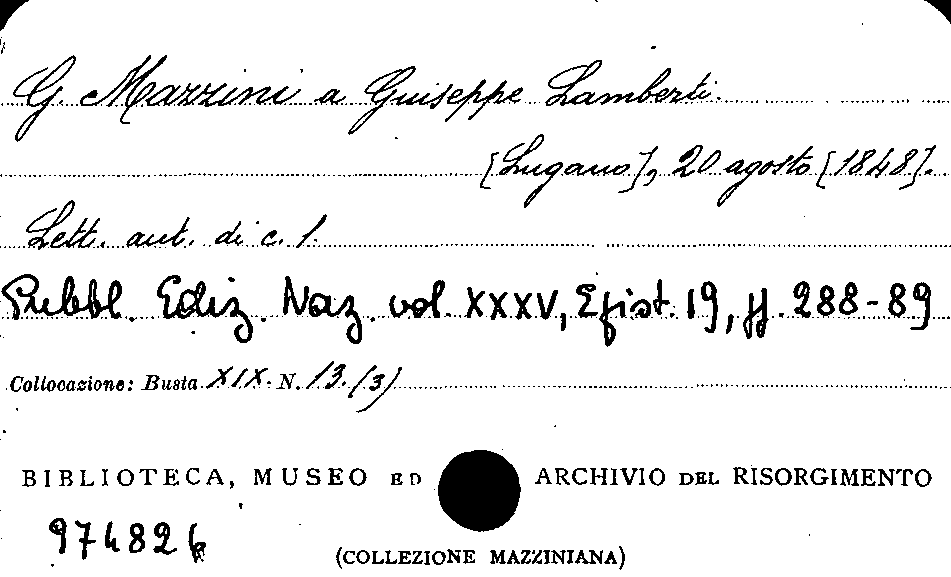 G. Mazzini a Giuseppe Lamberti.
[Lugano], 20 agosto [1848].
Lett. aut. di c. 1.
Pubbl. Ediz. Naz. vol. XXXV, Epist. 19, pp. 288-89
Collocazione: Busta XIX. N. 13. (3)
BIBLIOTECA, MUSEO ED ARCHIVIO DEL RISORGIMENTO
974826
(COLLEZIONE MAZZINIANA)